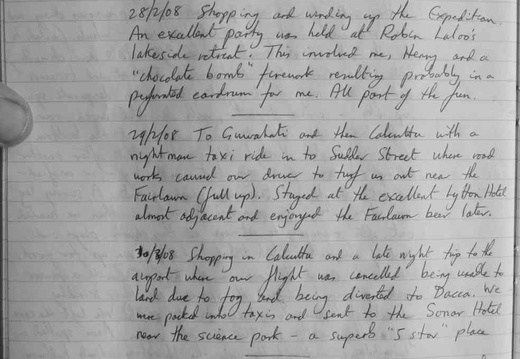 28/2/08 Shopping and winding up the Expedition.
An excellent party was held at Robin Laloo's
lakeside retreat. This involved me, Henry and a
"chocolate bomb" firework resulting probably in a
perforated eardrum for me. All part of the fun.
29/2/08 To Guwahati and then Calcutta with a
nightmare taxi ride in to Sudder Street where road
works caused our driver to turf us out near the
Fairlawn (full up). Stayed at the excellent Lytton Hotel
almost adjacent and enjoyed the Fairlawn beer later.
/08 Shopping in Calcutta and a late night trip to the
airport where our flight was cancelled being unable to
land due to fog and being diverted to Dacca. We
were packed into taxis and sent to the Sonar Hotel
near the science park - a superb "5 star" place